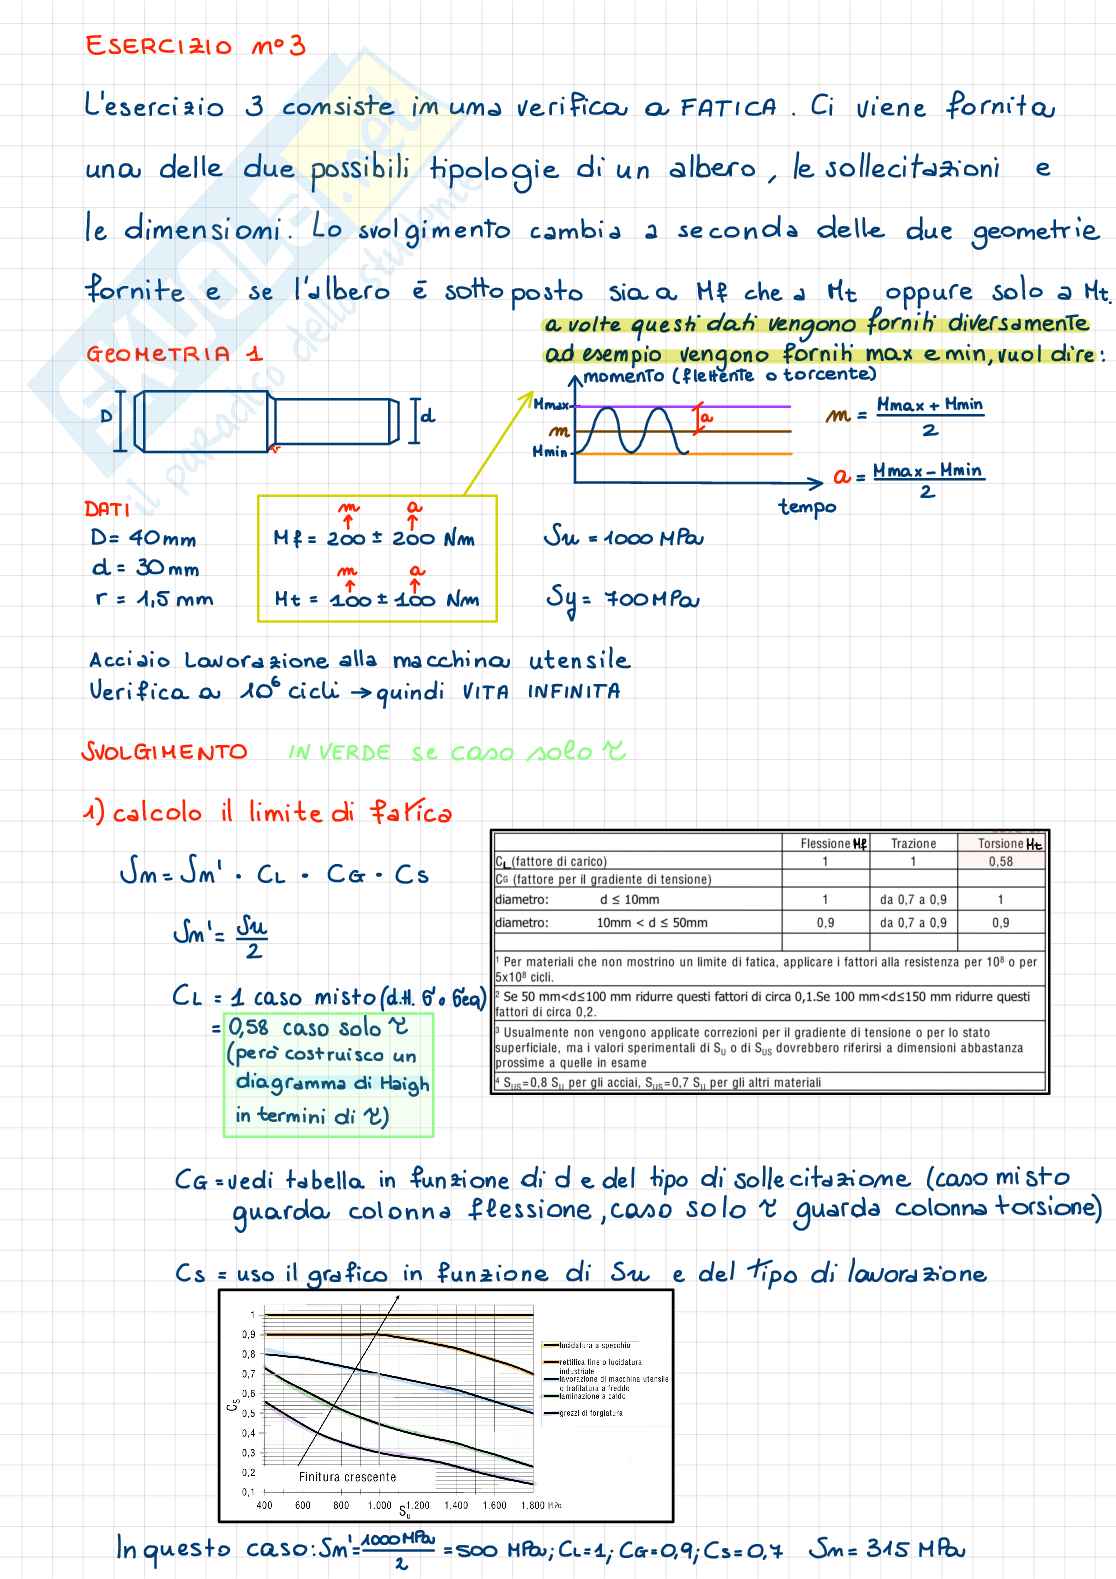 ESERCIZIO n°3
L'esercizio 3 consiste in una verifica a FATICA. Ci viene fornita
una delle due possibili tipologie di un albero, le sollecitazioni e
le dimensioni. Lo svolgimento cambia a seconda delle due geometrie
fornite e se l'albero è sottoposto sia a Mf che a Mt oppure solo a Mt.
a volte questi dati vengono forniti diversamente
ad esempio vengono forniti max e min, vuol dire:
GEOMETRIA 1
momento (flettente o torcente)
D
d
r
Mmax
m
Mmin
a
tempo
m = (Mmax + Mmin)/2
a = (Mmax - Mmin)/2
DATI
D = 40 mm
d = 30 mm
r = 1,5 mm
m a
Mf = 200 ± 200 Nm
m a
Mt = 100 ± 100 Nm
Su = 1000 MPa
Sy = 700 MPa
Acciaio Lavorazione alla macchina utensile
Verifica a 10⁶ cicli → quindi VITA INFINITA
SVOLGIMENTO IN VERDE se caso solo τ
1) calcolo il limite di fatica
Sn = Sn' · CL · CG · CS
Sn' = Su/2
CL = 1 caso misto (d.H. σ o σeq)
= 0,58 caso solo τ
(però costruisco un
diagramma di Haigh
in termini di τ)
Flessione Mf Trazione Torsione Mt
CL (fattore di carico) 1 1 0,58
CG (fattore per il gradiente di tensione)
diametro: d ≤ 10mm 1 da 0,7 a 0,9 1
diametro: 10mm < d ≤ 50mm 0,9 da 0,7 a 0,9 0,9
¹ Per materiali che non mostrino un limite di fatica, applicare i fattori alla resistenza per 10⁸ o per
5x10⁸ cicli.
² Se 50 mm<d≤100 mm ridurre questi fattori di circa 0,1.Se 100 mm<d≤150 mm ridurre questi
fattori di circa 0,2.
³ Usualmente non vengono applicate correzioni per il gradiente di tensione o per lo stato
superficiale, ma i valori sperimentali di SU o di SUS dovrebbero riferirsi a dimensioni abbastanza
prossime a quelle in esame
⁴ SUS=0,8 SU per gli acciai, SUS=0,7 SU per gli altri materiali
CG = vedi tabella in funzione di d e del tipo di sollecitazione (caso misto
guarda colonna flessione, caso solo τ guarda colonna torsione)
CS = uso il grafico in funzione di Su e del tipo di lavorazione
1
0,9
0,8
0,7
0,6
0,5
0,4
0,3
0,2
0,1
CS
Finitura crescente
400 600 800 1.000 1.200 1,400 1.600 1,800 MPa
Su
lucidatura a specchio
rettifica fine o lucidatura
industriale
lavorazione di macchina utensile
o trafilatura a freddo
laminazione a caldo
grezzi di forgiatura
In questo caso: Sn' = 1000 MPa/2 = 500 MPa; CL = 1; CG = 0,9; CS = 0,7 Sn = 315 MPa
SKUOLA.net
il paradiso dello studente